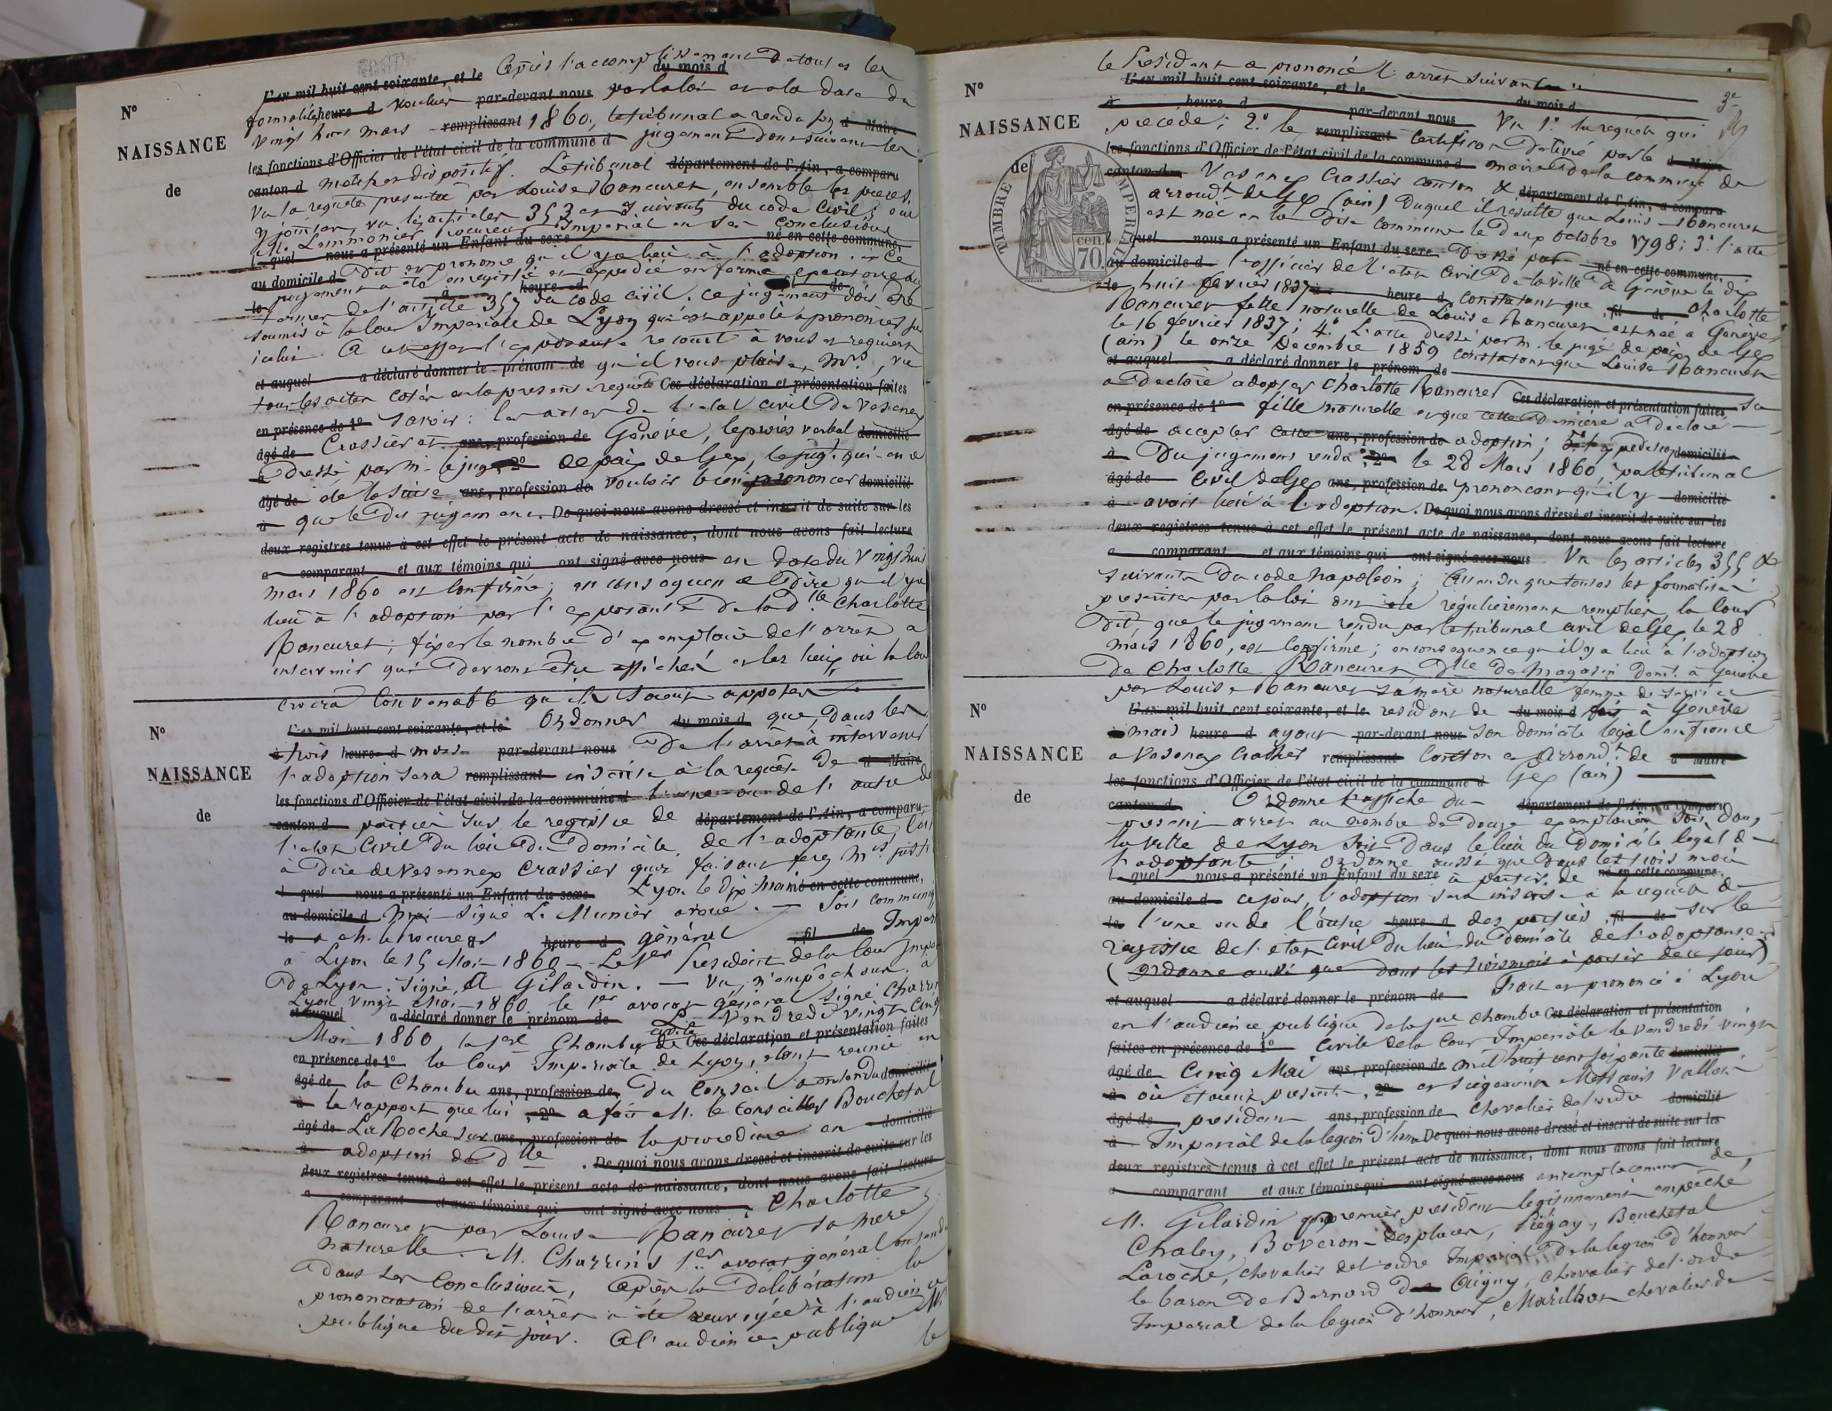 Après l'accomplissement de toutes les
L'an mil huit cent soixante, et le du mois d
formalités heure d voulues par-devant nous par la loi et à la date du
vingt huit mars remplissant 1860, le tribunal a rendu son d Maire
les fonctions d'Officier de l'état civil de la commune d jugement dont suivent les
canton d motifs et dispositif. Le tribunal département de l'Ain, a comparu
Vu la requête présentée par Louise Rancurer, ensemble les pièces
y jointes, vu les articles 353 et suivants du code civil; oui
M. Lemmonier Procureur Impérial en ses conclusions
l quel nous a présenté un Enfant du sexe né en cette commune,
au domicile d Dit et prononce qu'il y a lieu à l'adoption. Ce
le heure d fil de
jugement a été enregistré et expédié en forme
termes de l'article 357 du code civil. Ce jugement doit être
soumis à la Cour Impériale de Lyon qui est appelée à prononcer sur
icelui. A cet effet l'exposante recourt à vous et requiert
qu'il vous plaise, Mrs, vu
et auquel a déclaré donner le prénom de
tous les actes cotés en la présente requête Ces déclaration et présentation faites
en présence de 1° savoir: les actes de l'état civil de Vesenex
âgé de Crassier et ans, profession de Genève, le procès verbal domicilié
à dressé par M. le juge 2° de paix de Gex, le jugt. qui en a
âgé de été la suite, ans, profession de vouloir bien prononcer domicilié
à que le dit jugement. De quoi nous avons dressé et inscrit de suite sur les
deux registres tenus à cet effet le présent acte de naissance, dont nous avons fait lecture
a comparant et aux témoins qui ont signé avec nous en date du vingt huit
mars 1860 est confirmé; en conséquence dire qu'il y a
lieu à l'adoption par l'exposante de la dlle Charlotte
Rancurer; fixer le nombre d'exemplaire de l'arrêt à
intervenir qui devront être affichés et les lieux où la Cour
croira convenable qu'ils soient apposés
N° NAISSANCE de
L'an mil huit cent soixante, et le Ordonner du mois d que, dans les
trois heure d mois par-devant nous de l'arrêt à intervenir
l'adoption sera remplissant inscrite à la requête de d Maire
les fonctions d'Officier de l'état civil de la commune d l'une ou de l'autre des
canton d parties sur le registre de département de l'Ain, a comparu
l'état civil du lieu du domicile de l'adoptante, c'est
à dire de Vesennex Crassier
l quel nous a présenté un Enfant du sexe Lyon le dix mai né en cette commune,
au domicile d Signé L. Munier avoué. — Soit communiqué
le à M. le Procureur heure d général fil de Impérial
à Lyon le 15 Mai 1860. Le 1er Président de la Cour Impériale
de Lyon. Signé, A Gilardin. — Vu, n'empêchons. à
Lyon vingt Mai 1860 le 1er avocat général signé Charrins
et auquel a déclaré donner le prénom de Le Vendredi vingt cinq
Mai 1860, la 1ere Chambre civile de Ces déclaration et présentation faites
en présence de 1° la Cour Impériale de Lyon, étant réunie en
âgé de la Chambre ans, profession de du Conseil a entendu domicilié
à le rapport que lui 2° a fait M. le Conseiller Bouchetal
âgé de La Roche sur ans, profession de la procédure en domicilié
à adoption de dlle De quoi nous avons dressé et inscrit de suite sur les
deux registres tenus à cet effet le présent acte de naissance, dont nous avons fait lecture
a comparant et aux témoins qui ont signé avec nous. Charlotte
Rancurer par Louise Rancurer sa mère
naturelle. M. Charrins 1er avocat général entendu
dans ses Conclusions, Après la délibération la
prononciation de l'arrêt a été renvoyée à l'audience
publique du dit jour. A l'audience publique M.
le
le Président a prononcé l'arrêt suivant:
N° NAISSANCE de
L'an mil huit cent soixante, et le du mois d
à heure d par-devant nous Vu 1° la requête qui
précède; 2° le remplissant certificat délivré par le d Maire
les fonctions d'Officier de l'état civil de la commune d maire de la commune de
canton d Vesenex Crassier canton & département de l'Ain, a comparu
arrondt de Gex (ain) duquel il résulte que Louise Rancurer
est née en la dite commune le deux octobre 1798; 3° l'acte
TIMBRE IMPERIAL
70 cen.
l quel nous a présenté un Enfant du sexe Dressé par né en cette commune,
au domicile d l'officier de l'état civil de la ville de Genève le dix
le huit février 1837 heure d constatant que fil de Charlotte
Rancurer fille naturelle de Louise Rancurer est née à Genève
le 16 février 1837; 4° L'acte dressé par M. le juge de paix de Gex
(ain) le onze décembre 1859 constatant que Louise Rancurer
et auquel a déclaré donner le prénom de
a déclaré adopter Charlotte Rancurer Ces déclaration et présentation faites sa
en présence de 1° fille naturelle et que cette dernière a déclaré
âgé de accepter cette ans, profession de adoption; 5° l'expédition domicilié
à Du jugement rendu 2° le 28 Mars 1860 par le tribunal
âgé de Civil de Gex ans, profession de prononçant qu'il y domicilié
à avait lieu à l'adoption. De quoi nous avons dressé et inscrit de suite sur les
deux registres tenus à cet effet le présent acte de naissance, dont nous avons fait lecture
a comparant et aux témoins qui ont signé avec nous Vu les articles 355 &
suivants du code Napoléon; Attendu que toutes les formalités
présentes par la loi ont été régulièrement remplies, la Cour
Dit que le jugement rendu par le tribunal civil de Gex le 28
mars 1860, est confirmé; en conséquence qu'il y a lieu à l'adoption
de Charlotte Rancurer Dlle de magasin domt. à Genève
par Louise Rancurer sa mère naturelle femme de service
N° NAISSANCE de
L'an mil huit cent soixante, et le résidant de du mois d fait à Genève
mais heure d ayant par-devant nous son domicile légal en France
à Vesenex Crassier remplissant Canton et Arrondt de d Maire
les fonctions d'Officier de l'état civil de la commune d Gex (ain)
canton d Ordonne l'affiche du département de l'Ain, a comparu
présent arrêt au nombre de douze exemplaires soit dans
la ville de Lyon soit dans le lieu du domicile légal de
l'adoptante; ordonne aussi que dans les trois mois
l quel nous a présenté un Enfant du sexe à partir de né en cette commune
au domicile d ce jour, l'adoption sera inscrite à la requête de
le l'une ou de l'autre heure d des parties, fil de sur le
registre de l'état Civil du lieu du domicile de l'adoptante
(ordonne aussi que dans les trois mois à partir de ce jour)
et auquel a déclaré donner le prénom de Fait et prononcé à Lyon
en l'audience publique de la 1ere chambre Ces déclaration et présentation
faites en présence de 1° Civile de la Cour Impériale le Vendredi vingt
âgé de Cinq Mai ans, profession de mil huit cent soixante domicilié
à où étaient présents, 2° et siégeaient Messieurs Valloin
âgé de président ans, profession de chevalier de l'ordre domicilié
à Impérial de la légion d'honr De quoi nous avons dressé et inscrit de suite sur les
deux registres tenus à cet effet le présent acte de naissance, dont nous avons fait lecture
a comparant et aux témoins qui ont signé avec nous en remplacement de
M. Gilardin premier président légitimement empêché
Chaley, Boveron-Desplaces, Piégay, Bouchetal
Laroche, chevalier de l'ordre Impérial de la légion d'honneur
le baron de Bernard chevalier de l'ordre
Impérial de la légion d'honneur, Marilhat chevalier de